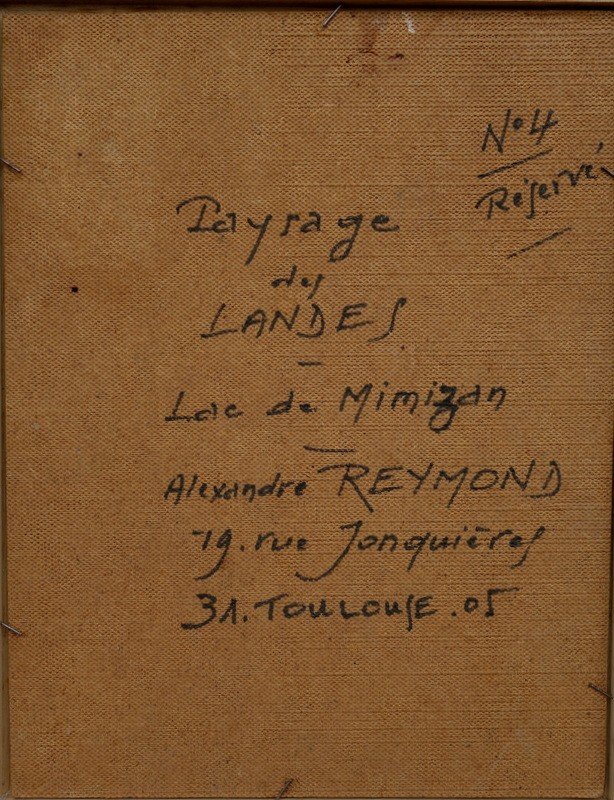 N°4
Réservé
Paysage
des
LANDES
Lac de Mimizan
Alexandre REYMOND
19. rue Jonquières
31. TOULOUSE. 05